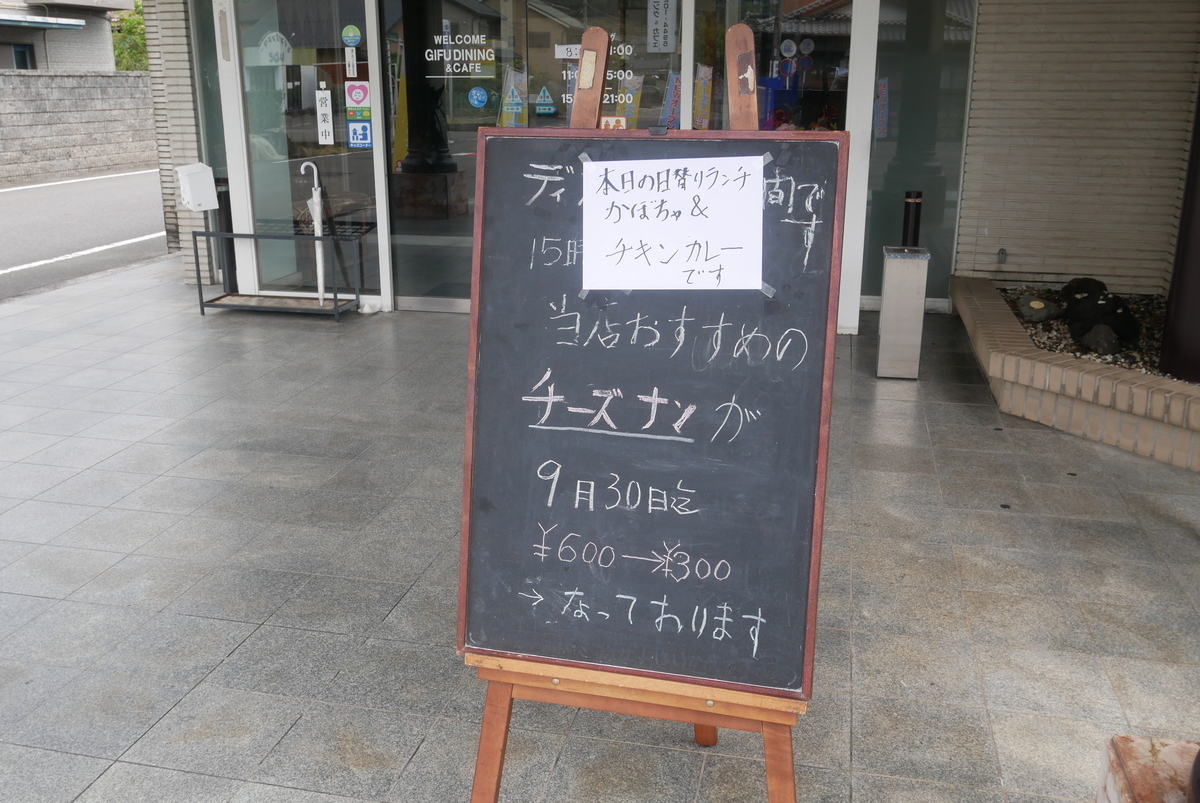 WELCOME
GIFU DINING
& CAFE
営業中
本日の日替りランチ
かぼちゃ &
チキンカレー
です
ディ
間です
15時
当店おすすめの
チーズナンが
9月30日迄
¥600→¥300
→なっております